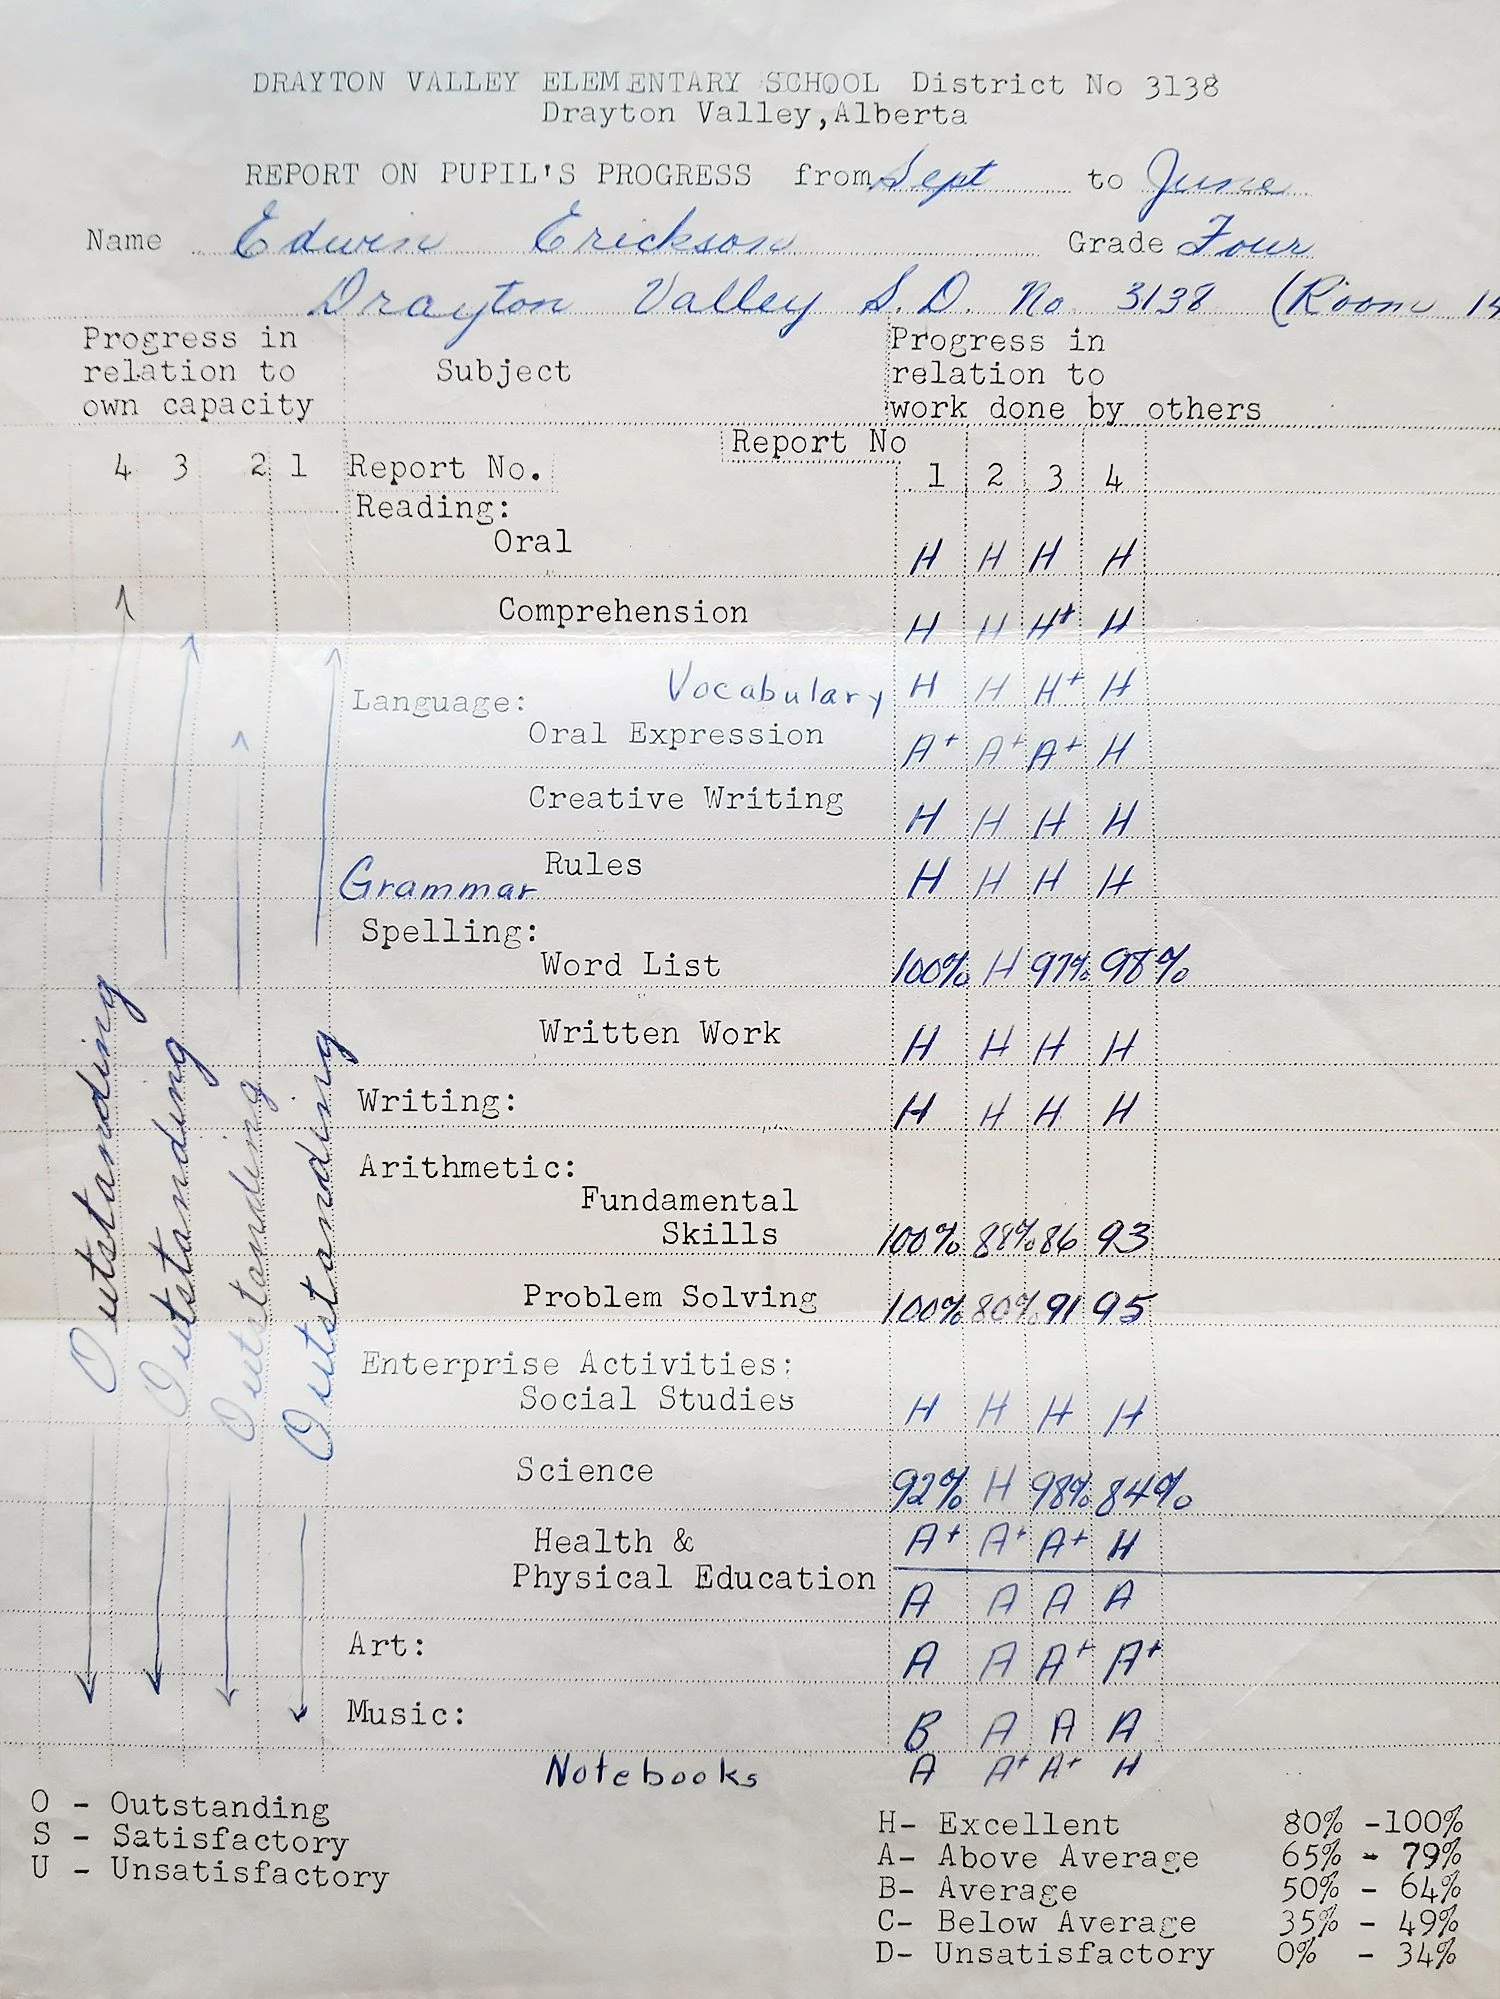 DRAYTON VALLEY ELEMENTARY SCHOOL District No 3138
Drayton Valley,Alberta
REPORT ON PUPIL'S PROGRESS from Sept to June
Name Edwin Erickson Grade Four
Drayton Valley S.D. No. 3138 (Room 14
Progress in relation to own capacity
Subject
Progress in relation to work done by others
Report No
4 3 2 1 Report No. 1 2 3 4
Reading:
Oral H H H H
Comprehension H H H+ H
Vocabulary H H H+ H
Language:
Oral Expression A+ A+ A+ H
Creative Writing H H H H
Grammar Rules H H H H
Spelling:
Word List 100% H 97% 98%
Written Work H H H H
Writing: H H H H
Arithmetic:
Fundamental
Skills 100% 88% 86 93
Problem Solving 100% 80% 91 95
Enterprise Activities:
Social Studies H H H H
Science 92% H 98% 84%
Health & A+ A+ A+ H
Physical Education A A A A
Art: A A A+ A+
Music: B A A A
Notebooks A A+ A+ H
Outstanding
Outstanding
Outstanding
Outstanding
O - Outstanding
S - Satisfactory
U - Unsatisfactory
H- Excellent 80% -100%
A- Above Average 65% - 79%
B- Average 50% - 64%
C- Below Average 35% - 49%
D- Unsatisfactory 0% - 34%